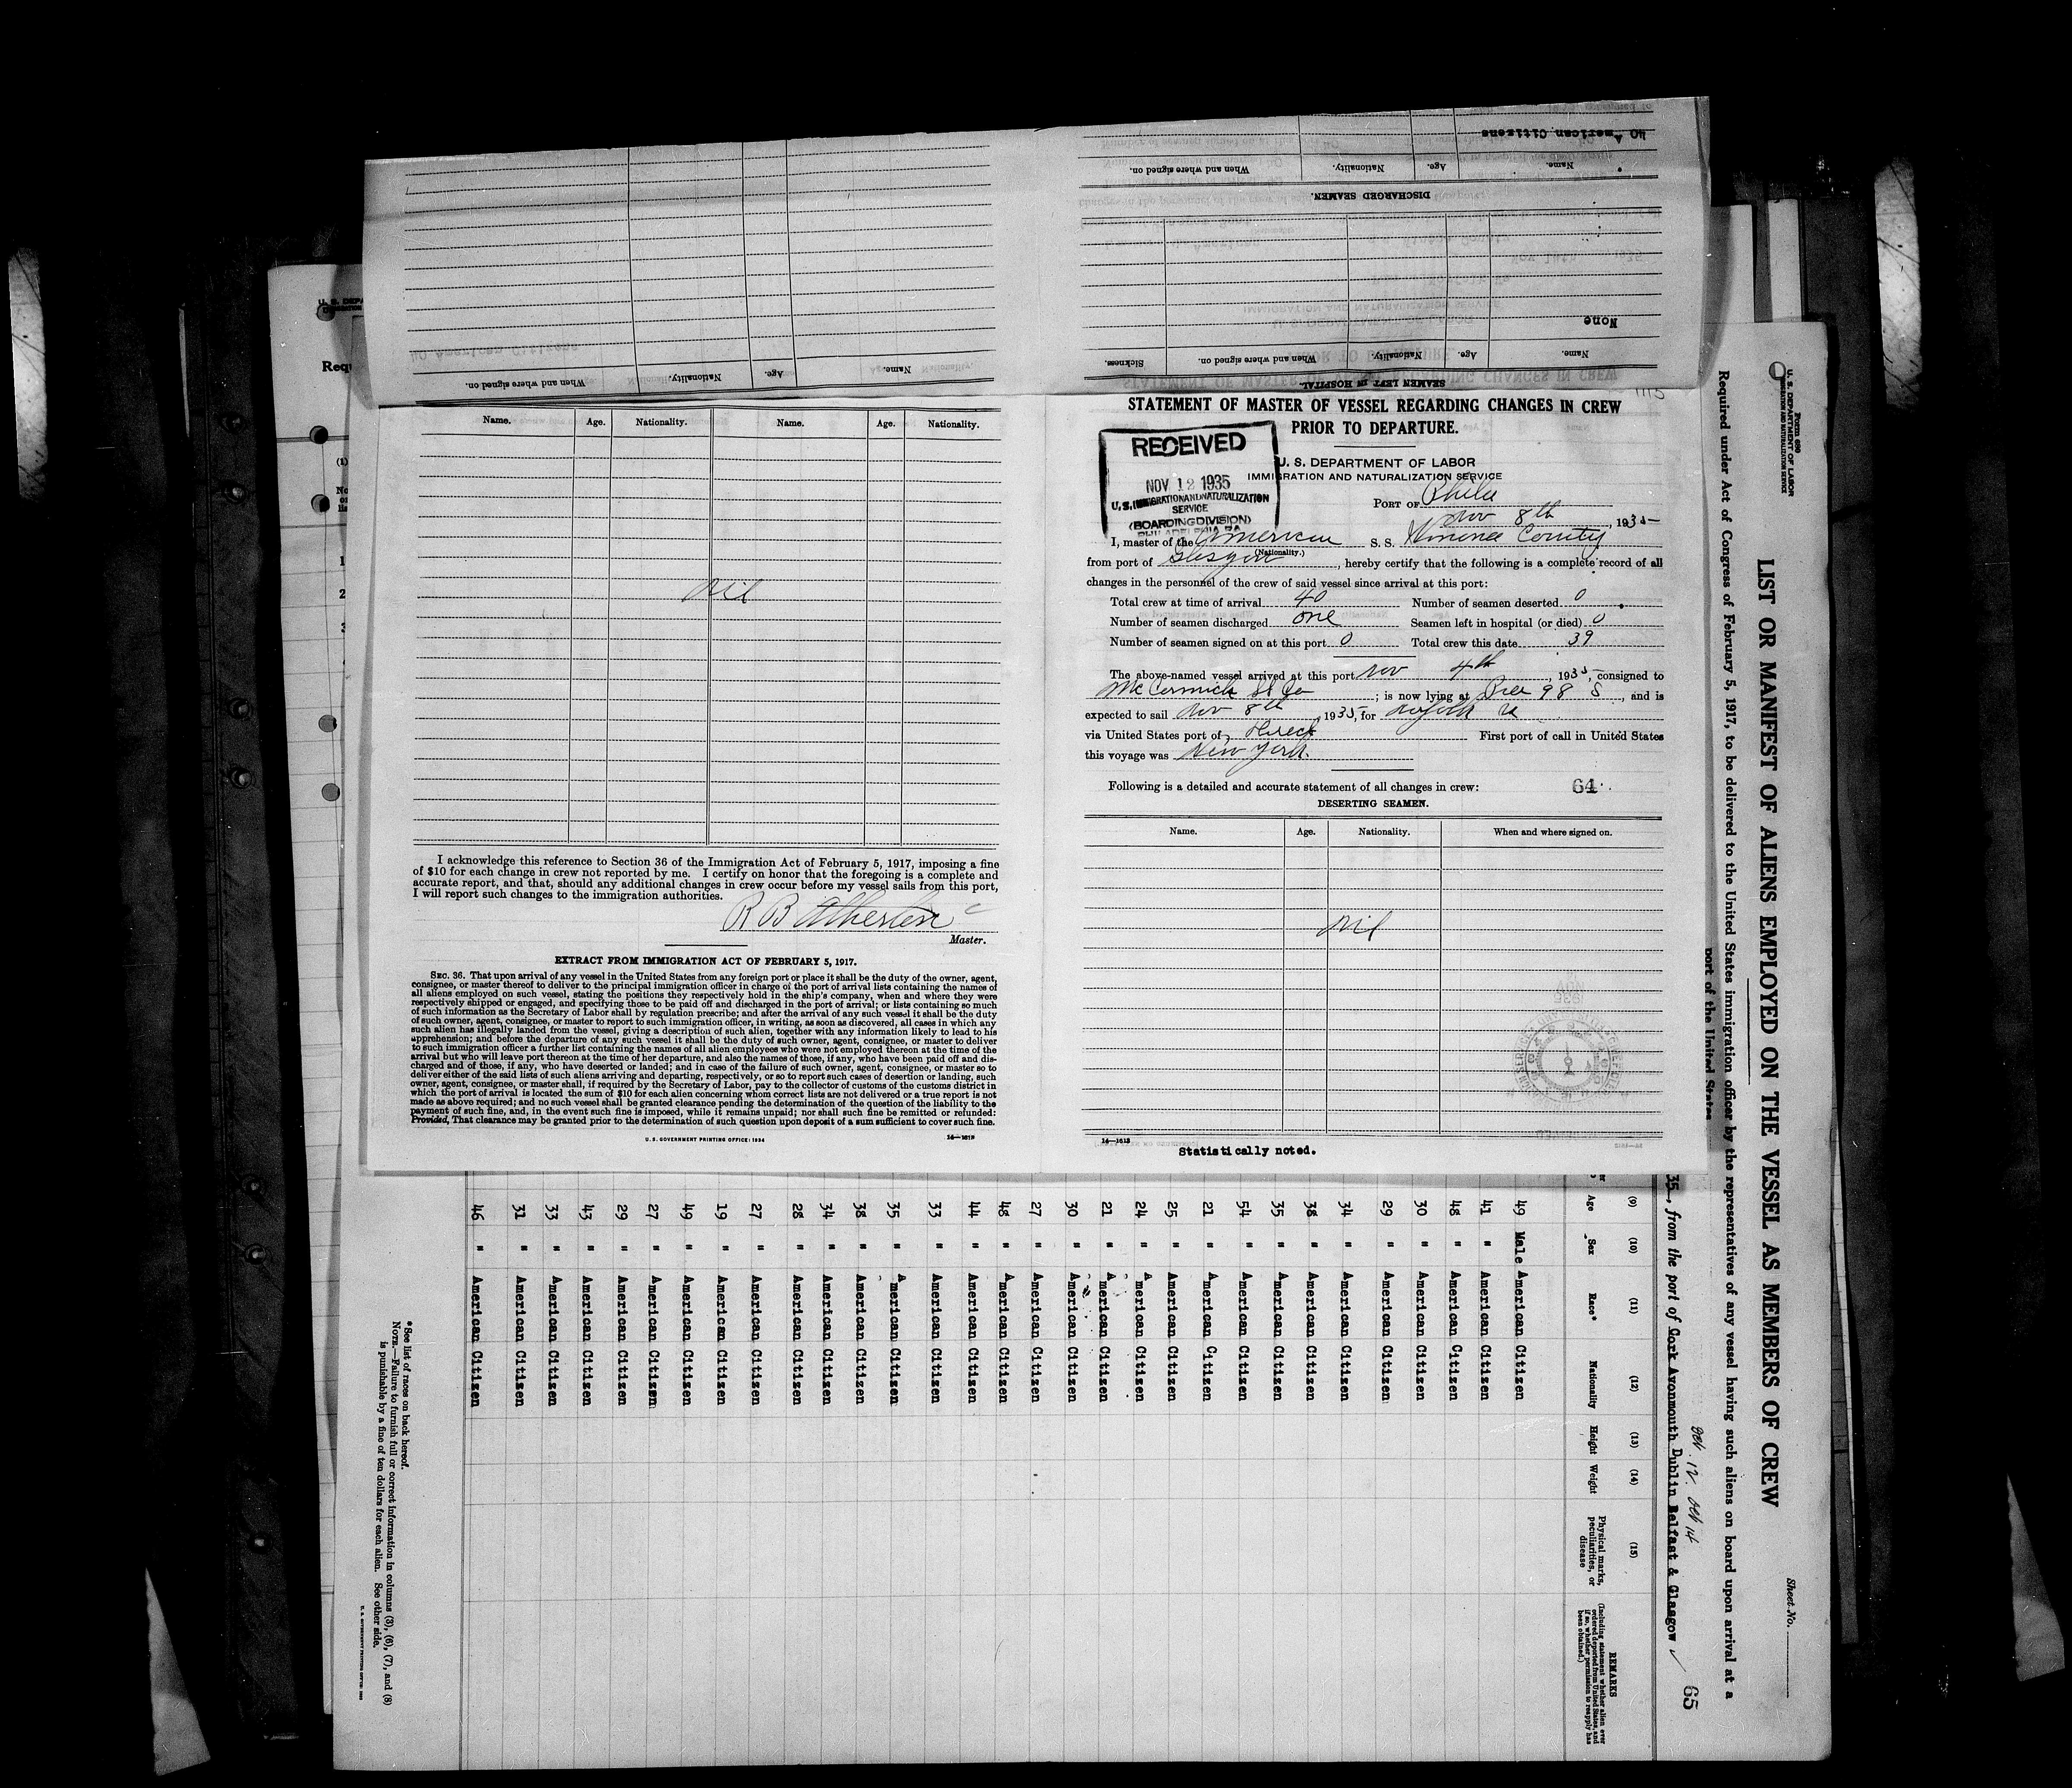 40 American Citizens
Name. Age. Nationality. When and where signed on.
DISCHARGED SEAMEN.
None
Name. Age. Nationality. When and where signed on. Sickness.
SEAMEN LEFT IN HOSPITAL
Name. Age. Nationality. When and where signed on.
Name. Age. Nationality. Name. Age. Nationality.
Nil
I acknowledge this reference to Section 36 of the Immigration Act of February 5, 1917, imposing a fine
of $10 for each change in crew not reported by me. I certify on honor that the foregoing is a complete and
accurate report, and that, should any additional changes in crew occur before my vessel sails from this port,
I will report such changes to the immigration authorities.
R B Atherton
Master.
EXTRACT FROM IMMIGRATION ACT OF FEBRUARY 5, 1917.
SEC. 36. That upon arrival of any vessel in the United States from any foreign port or place it shall be the duty of the owner, agent,
consignee, or master thereof to deliver to the principal immigration officer in charge of the port of arrival lists containing the names of
all aliens employed on such vessel, stating the positions they respectively hold in the ship's company, when and where they were
respectively shipped or engaged, and specifying those to be paid off and discharged in the port of arrival; or lists containing so much
of such information as the Secretary of Labor shall by regulation prescribe; and after the arrival of any such vessel it shall be the duty
of such owner, agent, consignee, or master to report to such immigration officer, in writing, as soon as discovered, all cases in which any
such alien has illegally landed from the vessel, giving a description of such alien, together with any information likely to lead to his
apprehension; and before the departure of any such vessel it shall be the duty of such owner, agent, consignee, or master to deliver
to such immigration officer a further list containing the names of all alien employees who were not employed thereon at the time of the
arrival but who will leave port thereon at the time of her departure, and also the names of those, if any, who have been paid off and dis-
charged and of those, if any, who have deserted or landed; and in case of the failure of such owner, agent, consignee, or master so to
deliver either of the said lists of such aliens arriving and departing, respectively, or so to report such cases of desertion or landing, such
owner, agent, consignee, or master shall, if required by the Secretary of Labor, pay to the collector of customs of the customs district in
which the port of arrival is located the sum of $10 for each alien concerning whom correct lists are not delivered or a true report is not
made as above required; and no such vessel shall be granted clearance pending the determination of the question of the liability to the
payment of such fine, and, in the event such fine is imposed, while it remains unpaid; nor shall such fine be remitted or refunded:
Provided, That clearance may be granted prior to the determination of such question upon deposit of a sum sufficient to cover such fine.
U. S. GOVERNMENT PRINTING OFFICE: 1934 14—1613
STATEMENT OF MASTER OF VESSEL REGARDING CHANGES IN CREW
PRIOR TO DEPARTURE.
RECEIVED
NOV 12 1935
U. S. IMMIGRATION AND NATURALIZATION
SERVICE
(BOARDING DIVISION)
PHILADELPHIA PA.
U. S. DEPARTMENT OF LABOR
IMMIGRATION AND NATURALIZATION SERVICE
PORT OF Phila
Nov 8th, 1935
I, master of the American S. S. Winona County
(Nationality.)
from port of Glasgow, hereby certify that the following is a complete record of all
changes in the personnel of the crew of said vessel since arrival at this port:
Total crew at time of arrival 40 Number of seamen deserted 0
Number of seamen discharged one Seamen left in hospital (or died) 0
Number of seamen signed on at this port 0 Total crew this date 39
The above-named vessel arrived at this port Nov 4th, 1935, consigned to
McCormick SS Co; is now lying at Pier 98 S, and is
expected to sail Nov 8th, 1935, for Norfolk Va
via United States port of Direct First port of call in United States
this voyage was New York.
Following is a detailed and accurate statement of all changes in crew: 64
DESERTING SEAMEN.
Name. Age. Nationality. When and where signed on.
Nil
14—1613
Statistically noted.
Form 680
U. S. DEPARTMENT OF LABOR
IMMIGRATION AND NATURALIZATION SERVICE
Sheet No.
LIST OR MANIFEST OF ALIENS EMPLOYED ON THE VESSEL AS MEMBERS OF CREW
Required under Act of Congress of February 5, 1917, to be delivered to the United States immigration officer by the representatives of any vessel having such aliens on board upon arrival at a
port of the United States
Oct. 12. Oct 14
35, from the port of Cork Avonmouth Dublin Belfast & Glasgow 65
(9) (10) (11) (12) (13) (14) (15)
Age Sex Race* Nationality Height Weight Physical marks, peculiarities, or disease
REMARKS
(Including statement whether alien ever
ordered deported from United States, and
if so, whether permission to reapply has
been obtained.)
49 Male American Citizen
41 " American Citizen
48 " American Citizen
30 " American Citizen
29 " American Citizen
34 " American Citizen
38 " American Citizen
35 " American Citizen
54 " American Citizen
21 " American Citizen
25 " American Citizen
24 " American Citizen
21 " American Citizen
30 " American Citizen
27 " American Citizen
48 " American Citizen
44 " American Citizen
33 " American Citizen
35 " American Citizen
38 " American Citizen
34 " American Citizen
28 " American Citizen
27 " American Citizen
19 " American Citizen
49 " American Citizen
27 " American Citizen
29 " American Citizen
43 " American Citizen
33 " American Citizen
31 " American Citizen
46 " American Citizen
*See list of races on back hereof.
NOTE.—Failure to furnish full or correct information in columns (3), (6), (7), and (8)
is punishable by a fine of ten dollars for each alien. See other side.